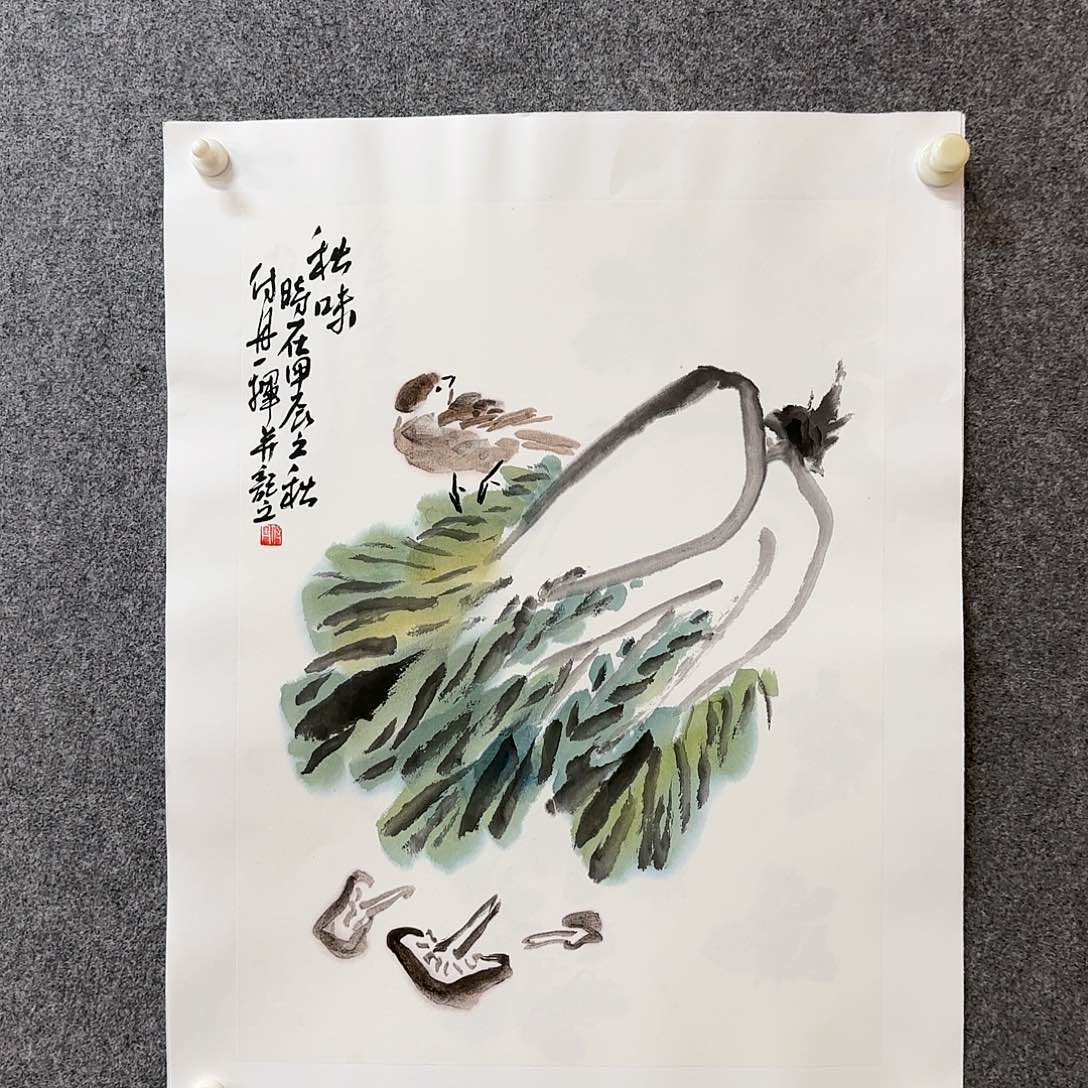 秋味
時在甲辰之秋
付丹一揮并記之